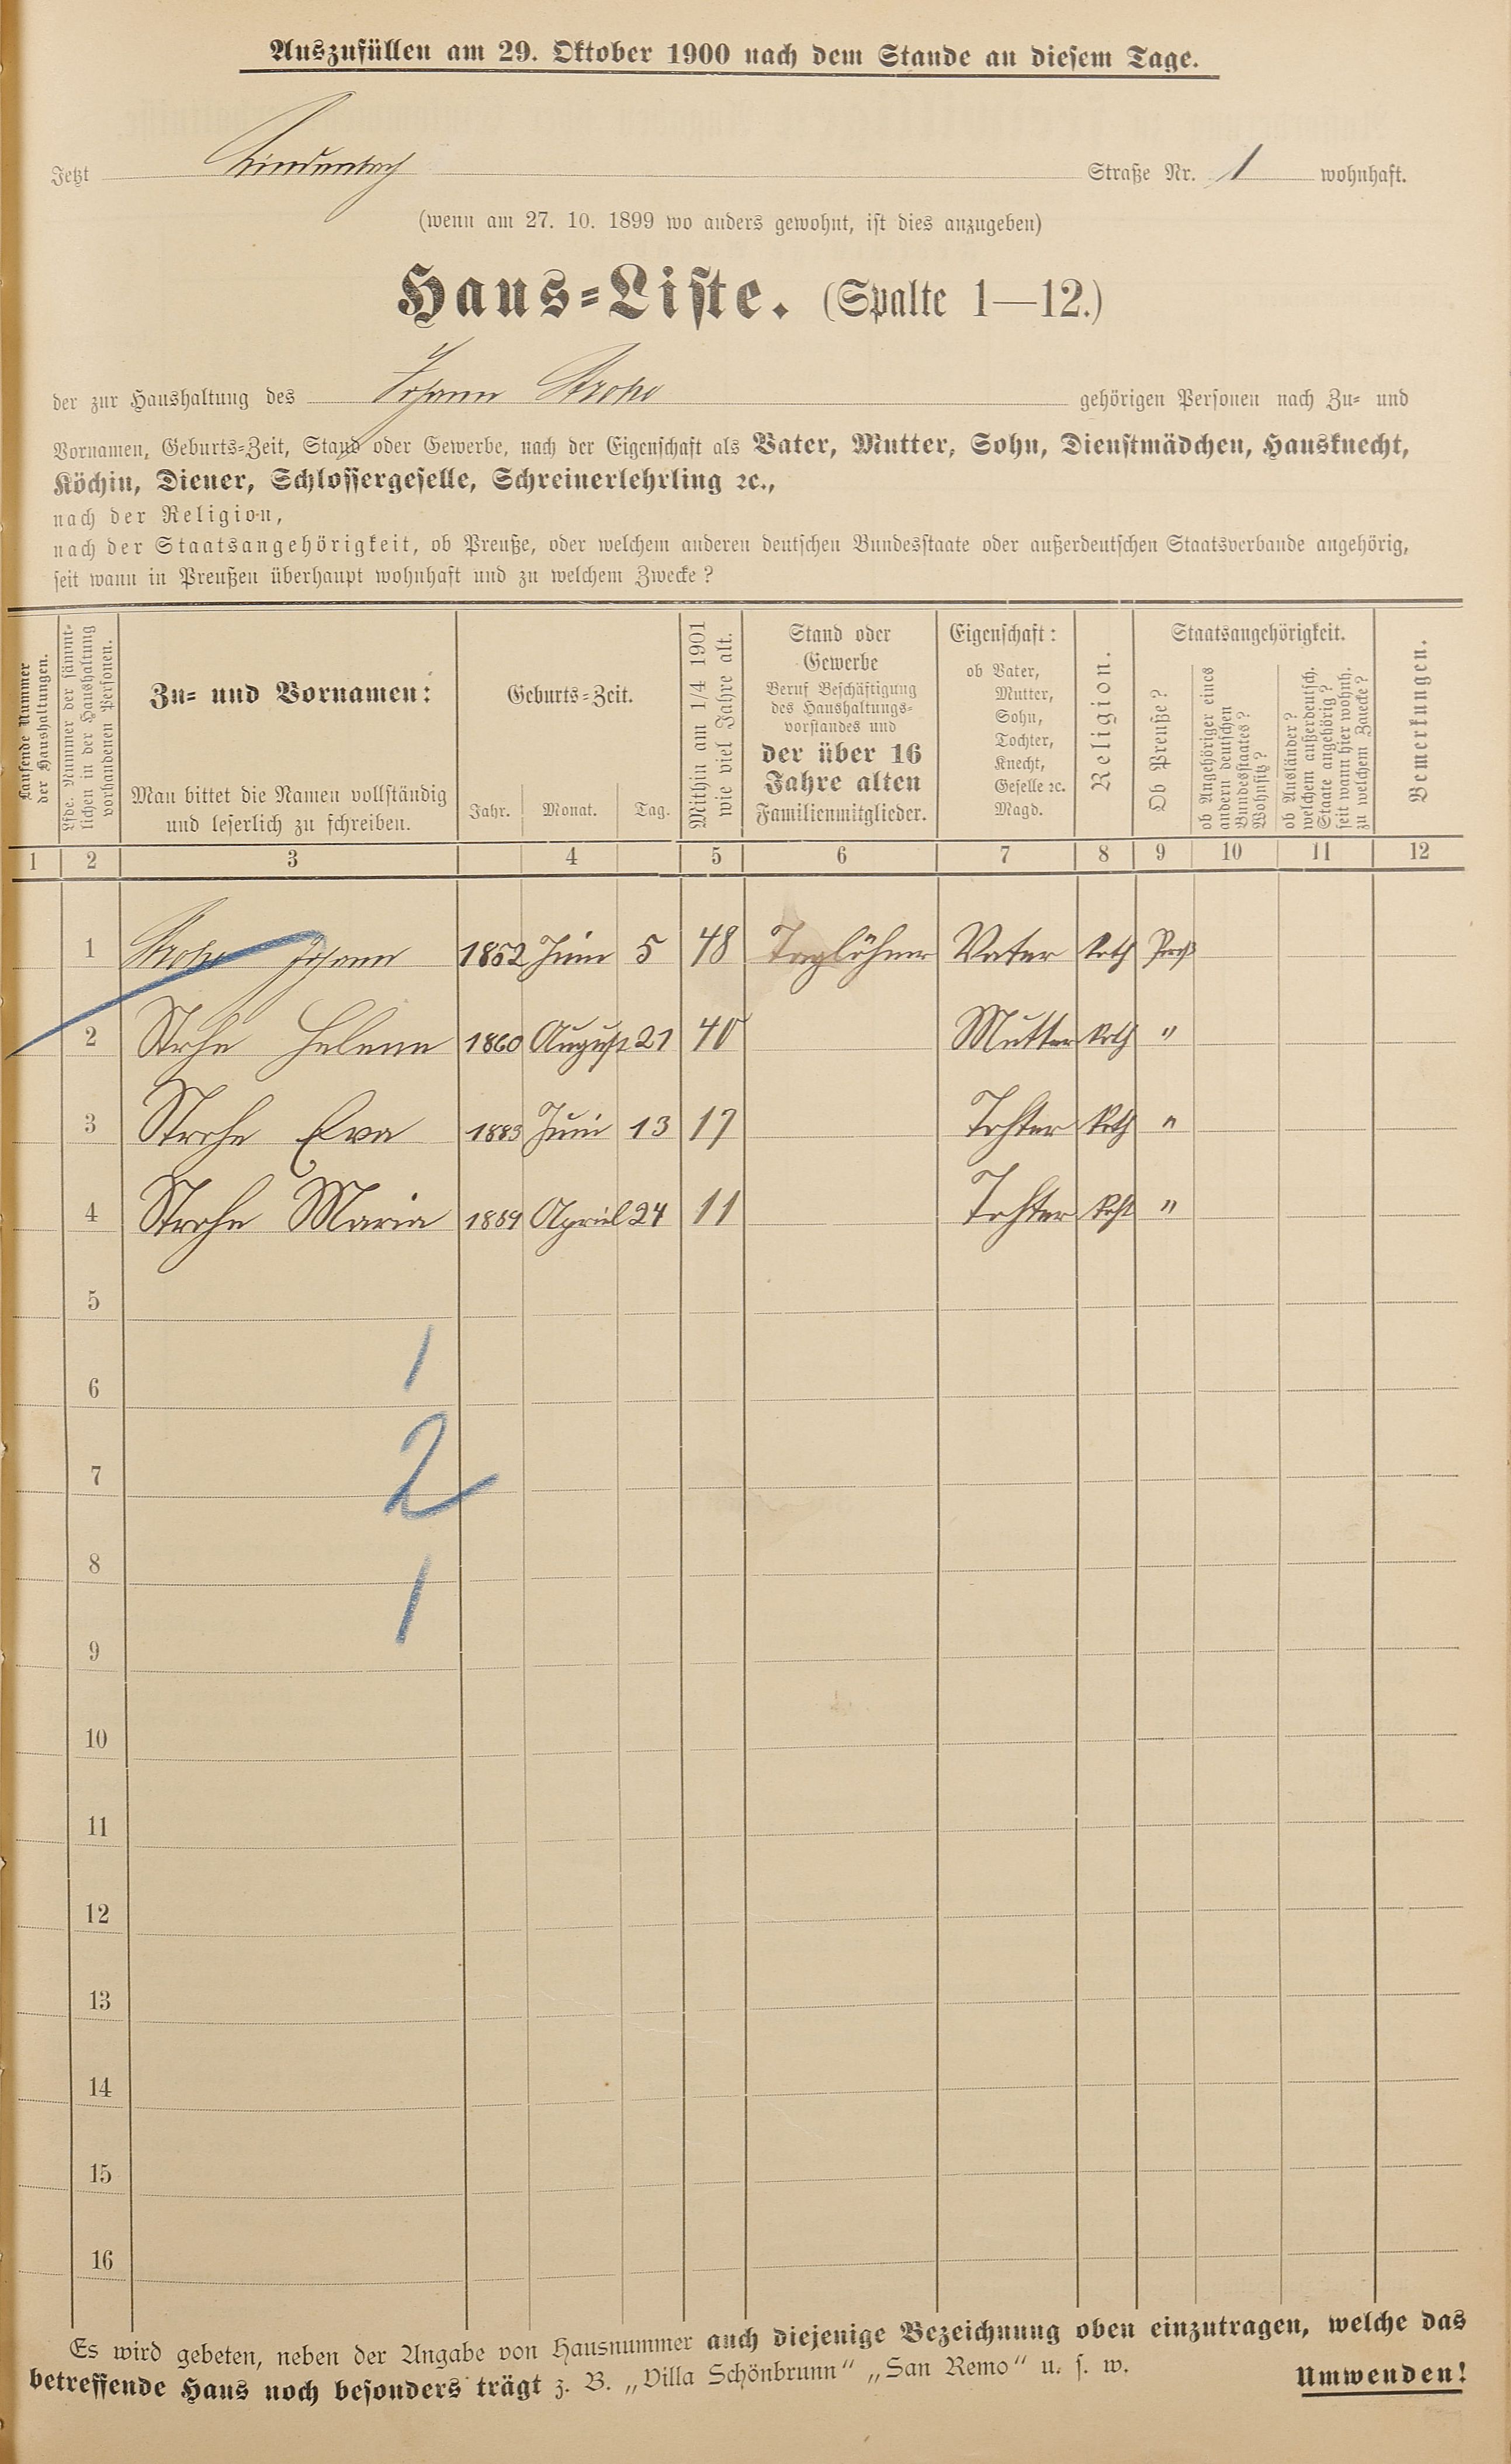 Auszufüllen am 29. Oktober 1900 nach dem Stande an diesem Tage.
Jetzt Lindenbach Straße Nr. 1 wohnhaft.
(wenn am 27. 10. 1899 wo anders gewohnt, ist dies anzugeben)
Haus=Liste. (Spalte 1—12.)
der zur Haushaltung des Johann Strohe gehörigen Personen nach Zu= und
Vornamen, Geburts=Zeit, Stand oder Gewerbe, nach der Eigenschaft als Vater, Mutter, Sohn, Dienstmädchen, Hausknecht,
Köchin, Diener, Schlossergeselle, Schreinerlehrling ꝛc.,
nach der Religion,
nach der Staatsangehörigkeit, ob Preuße, oder welchem anderen deutschen Bundesstaate oder außerdeutschen Staatsverbande angehörig,
seit wann in Preußen überhaupt wohnhaft und zu welchem Zwecke?
Laufende Nummer
der Haushaltungen.
Lfde. Nummer der sämmt-
lichen in der Haushaltung
vorhandenen Personen.
Zu= und Vornamen:
Man bittet die Namen vollständig
und leserlich zu schreiben.
Geburts=Zeit.
Jahr. Monat. Tag.
Mithin am 1/4 1901
wie viel Jahre alt.
Stand oder
Gewerbe
Beruf Beschäftigung
des Haushaltungs-
vorstandes und
der über 16
Jahre alten
Familienmitglieder.
Eigenschaft:
ob Vater,
Mutter,
Sohn,
Tochter,
Knecht,
Geselle ꝛc.
Magd.
Religion.
Staatsangehörigkeit.
Ob Preuße?
ob Angehöriger eines
andern deutschen
Bundesstaates?
Wohnsitz?
ob Ausländer?
welchem außerdeutsch.
Staate angehörig?
seit wann hier wohnh.
zu welchem Zwecke?
Bemerkungen.
1 2 3 4 5 6 7 8 9 10 11 12
1 Strohe Johann 1852 Juni 5 48 Taglöhner Vater Kath Preuß
2 Strhe Helena 1860 August 21 40 Mutter Kath "
3 Strohe Eva 1883 Juni 13 17 Tochter Kath "
4 Strohe Maria 1889 April 24 11 Tochter Kath "
5
1
6
2
7
8
1
9
10
11
12
13
14
15
16
Es wird gebeten, neben der Angabe von Hausnummer auch diejenige Bezeichnung oben einzutragen, welche das
betreffende Haus noch besonders trägt z. B. „Villa Schönbrunn“ „San Remo“ u. s. w.
Umwenden!